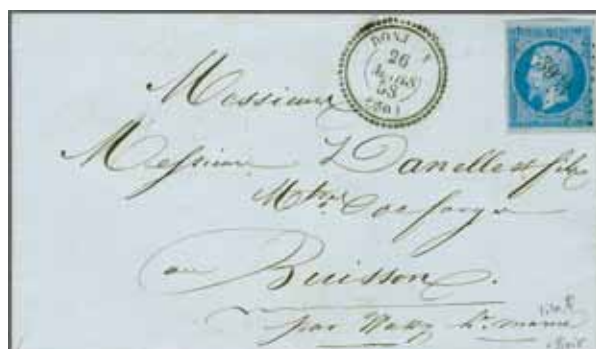 26
58
Messieurs
Messieurs Danelle et fils
Mtres de forges
au
Buisson.
par Wassy hte marne